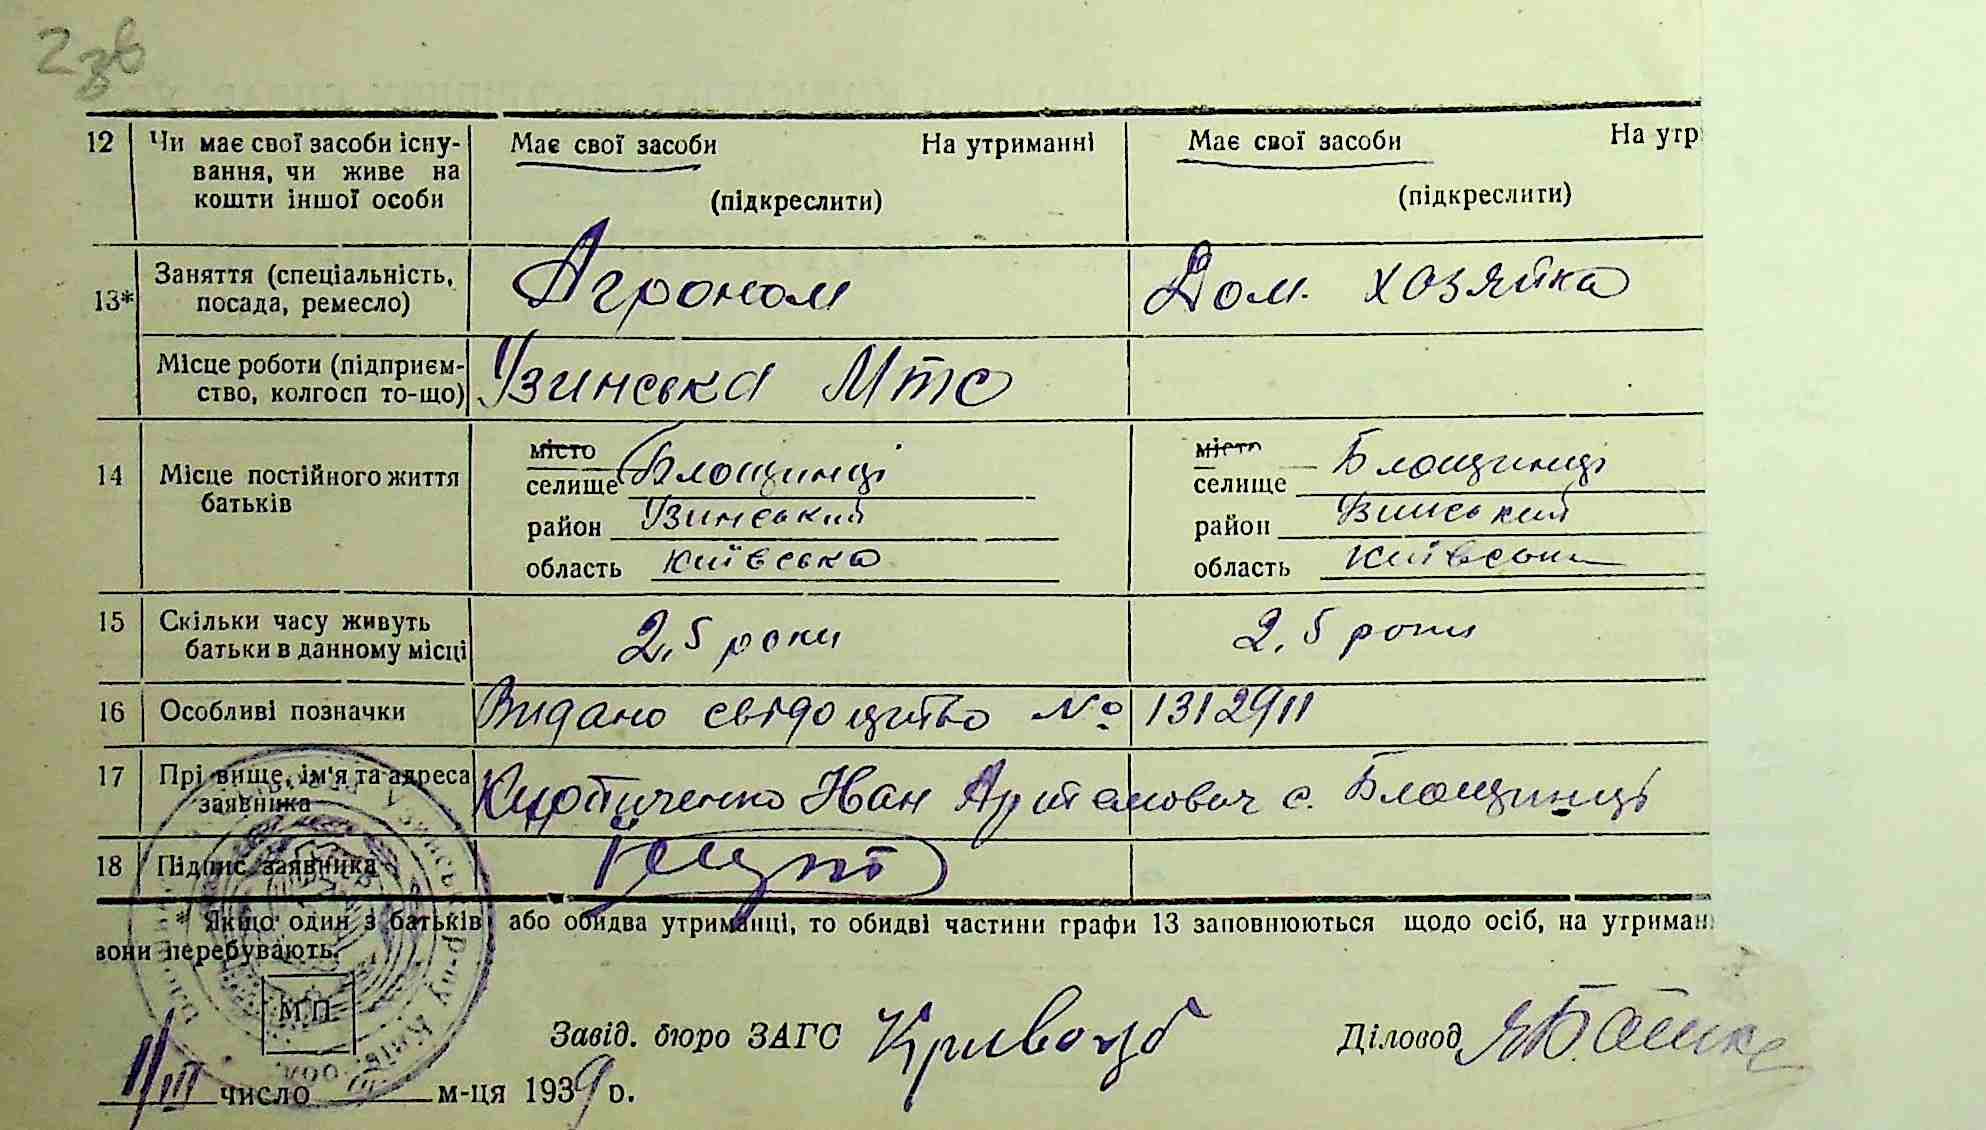 2зв
12 Чи має свої засоби існу- Має свої засоби На утриманні Має свої засоби На утр
вання, чи живе на
кошти іншої особи (підкреслити) (підкреслити)
13* Заняття (спеціальність, Агроном Дом. хозяйка
посада, ремесло)
Місце роботи (підприєм- Узинська МТС
ство, колгосп то-що)
14 Місце постійного життя батьків
місто місто
селище Блощинці селище Блощинці
район Узинський район Узинський
область Київська область Київська
15 Скільки часу живуть 2,5 роки 2,5 роки
батьки в данному місці
16 Особливі позначки Видано свідоцтво № 1312911
17 Прівище, ім'я та адреса Кирпиченко Іван Артемович с. Блощинці
заявника
18 Підпис заявника
* Якщо один з батьків або обидва утриманці, то обидві частини графи 13 заповнюються щодо осіб, на утриман
вони перебувають.
М.П.
Завід. бюро ЗАГС Діловод
11/III число м-ця 1939 р.